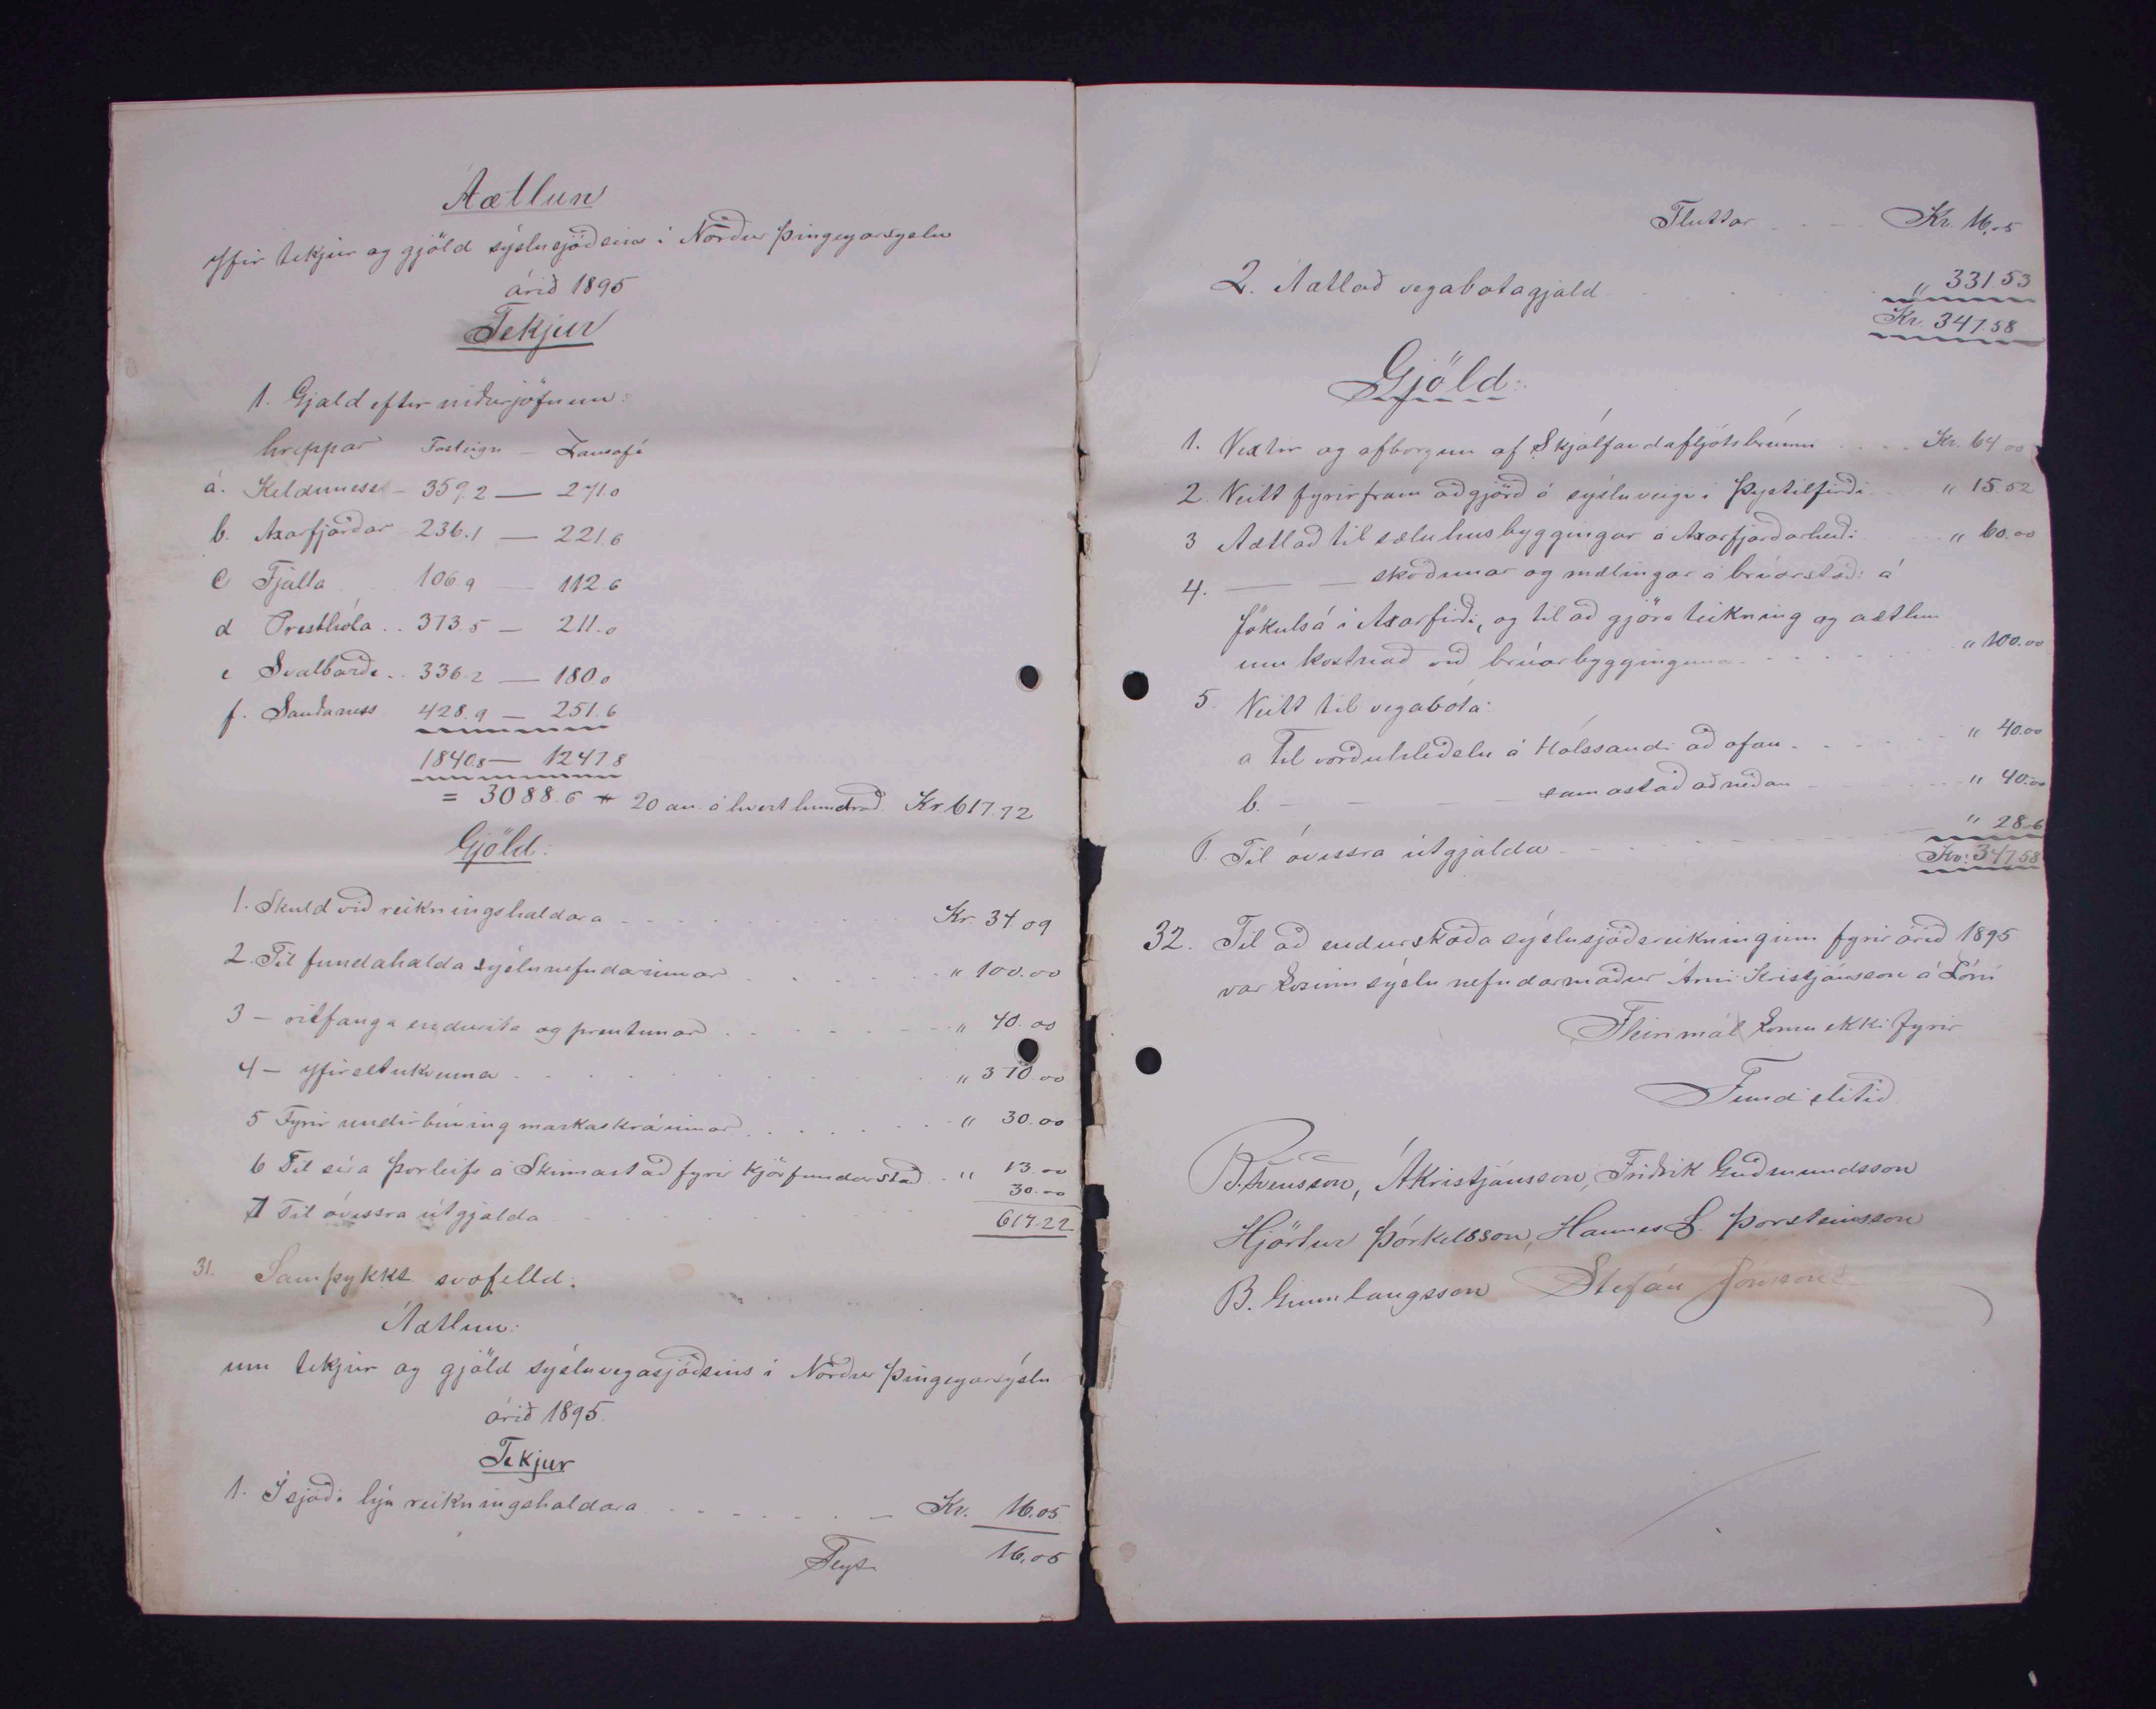 Áætlun
yfir tekjur og gjöld sýslusjóðsins í Norður þingeyarsyslu
árið 1895
Tekjur
1. Gjald eftir niðurjöfnun:
hreppar Fasteign - Lausafé
á. Kelduness - 359.2 — 271.0
b. Axarfjarðar 236.1 — 221.6
c Fjalla 106.9 — 112.6
d Presthóla .. 373.5 — 211.0
e Svalbarðs .. 336.2 — 180.0
f. Sauðaness 428.9 — 251.6
1840.8 — 1247.8
= 3088.6 + 20 au. á hvert hundrað. Kr. 617.72
Gjöld:
1. Skuld við reikningshaldara Kr. 34.09
2. Til fundahalda sýslunefndarinnar " 100.00
3 — ritfanga endurita og prentunar " 40.00
4 — yfirsetukvenna " 370.00
5 Fyrir undirbúning markaskráinnar " 30.00
6 Til síra Þorleifs á Skinnastað fyrir kjörfundarstað .. " 13.00
7 Til óvissra útgjalda 30.00
617.22
31. Samþykkt svofelld.
Áætlun:
um tekjur og gjöld sýsluvegasjóðsins í Norður þingeyarsýslu
árið 1895.
Tekjur
1. Í sjóði hjá reikningshaldara Kr. 16.05
Flyt 16,05
Fluttar Kr. 16,05
2. Áætlað vegabotagjald " 331.53
Kr. 347.58
Gjöld:
1. Vextir og afborgun af Skjálfandafljótsbrúnni Kr. 64.00
2. Veitt fyrirfram aðgjörð á sýsluveigi í Þystilfirði " 15.52
3 Áætlað til sæluhusbyggingar á Axarfjarðarheiði " 60.00
4. — — skoðunar og mælingar á brúarstæði á
Jökulsá í Axarfirði, og til að gjöra teikning og aætlun
um kostnað við brúarbygginguna " 100.00
5. Veitt til vegabóta:
a Til vörðuhleðslu á Hólssandi að ofan " 40.00
b. — — — samastað að neðan " 40.00
6. Til óvissra útgjalda " 28.06
Kr. 347.58
32. Til að endurskoða sýslusjóðsreikninginn fyrir árið 1895
var kosinn sýslunefndarmaður Árni Kristjánsson á Lóni
Fleiri mál komu ekki fyrir
Fundi slitið.
B. Sveinsson, ÁKristjánsson, Friðrik Guðmundsson
Hjörtur Þórkelsson, Hannes L. Þorsteinsson
B. Gunnlaugsson Stefán Jónsson